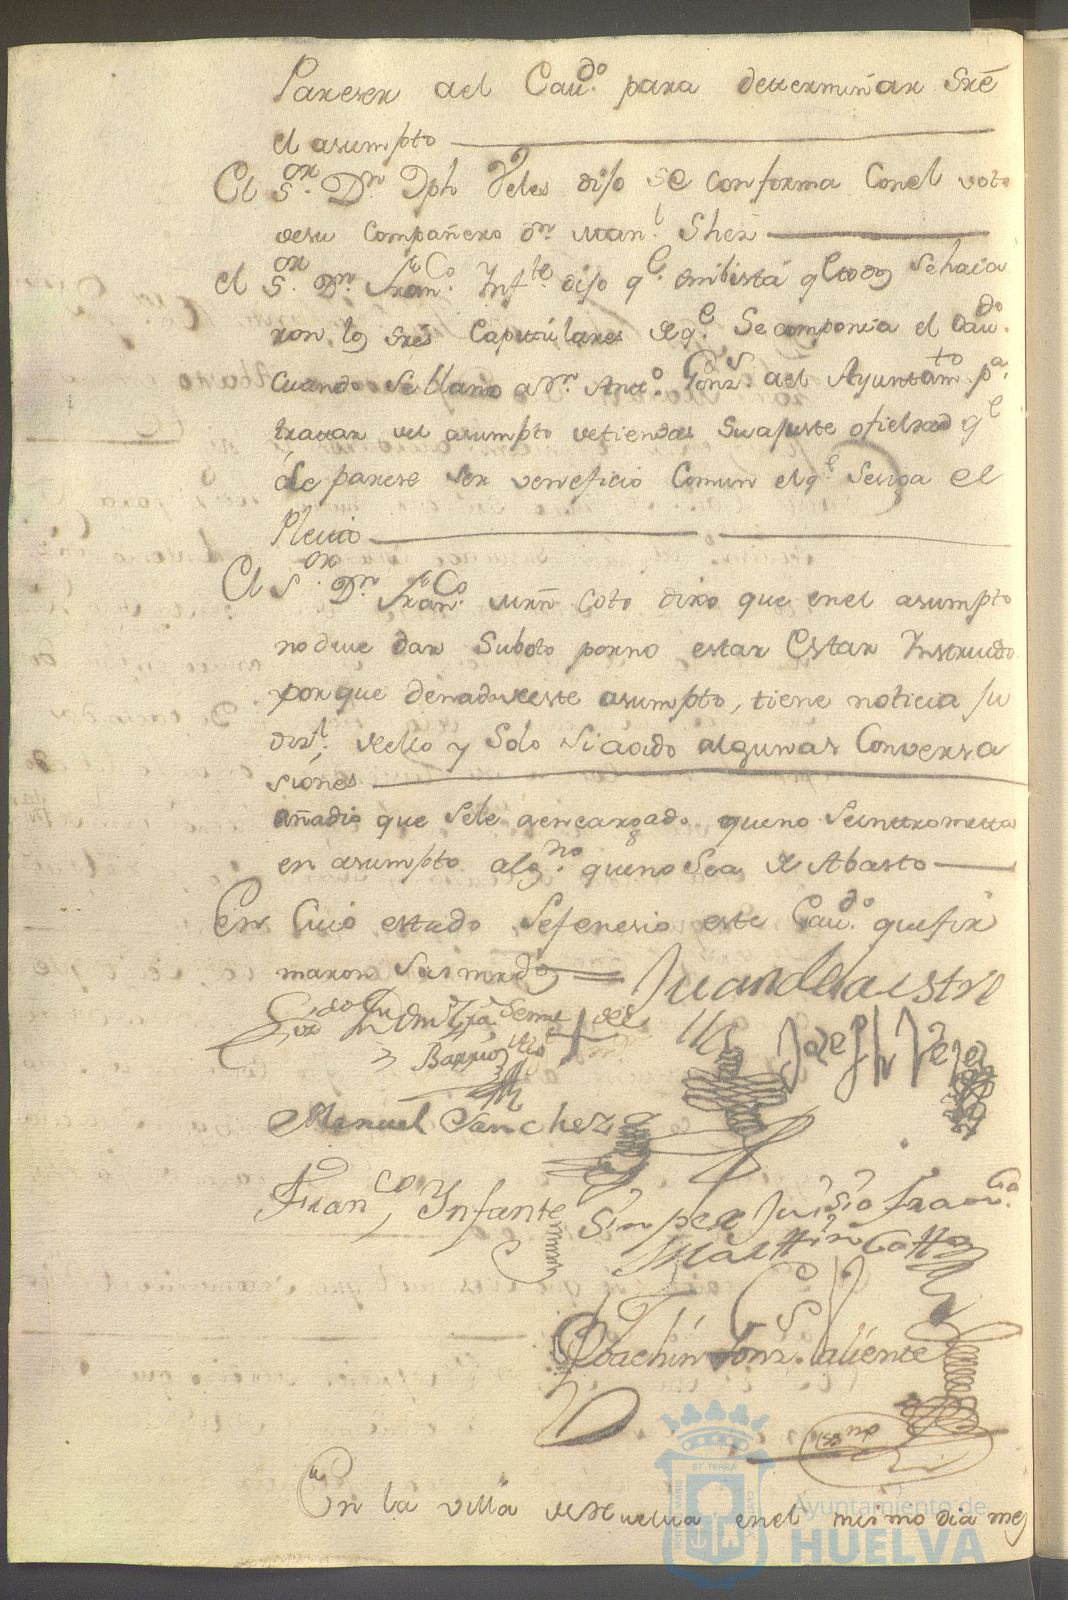 Pareser del Cavdo. para determinar Sre
el asumpto
El Sor. Dn Jph Veles dijo se conforma Conel voto
desu compañero Dn. Manl. Shez
el Sor. Dn. Franco. Infte. dijo qe. enbista qe todos se halla
ron los Sres Capitulares de qe. Se componia el Cavdo.
Cuando se llamo a Dn. Anto. Gonz. del Ayuntamto. pa.
tratar del asumpto detiendas Su ajuste ofieldad qe
le parese ser veneficio Comun el qe. Seciga el
Pleito
El Sor. Dn Franco. Mrn Coto dixo que enel asumpto
no deve dar Suboto porno estar Estar Instruido
porque denadadeeste asumpto, tiene noticia ju
disl. dello y Solo Si aoido algunas Conversa
siones
añadio que sele aencargado queno seinttrometta
en asumpto algno. queno Sea de Abasto
En Cuio estado sefenesio este Cavdo. quefir
maron Susmrdes
Juan de la
Lizdo Dn
Barrios
Joseph Velez
Manuel Sanchez
Franco, Infante
Sin per Juisio franco.
Marttin Cotto
Joachin Gonz. Caliente
En la villa de Huelva enel mismo dia mes
Ayuntamiento de
HUELVA